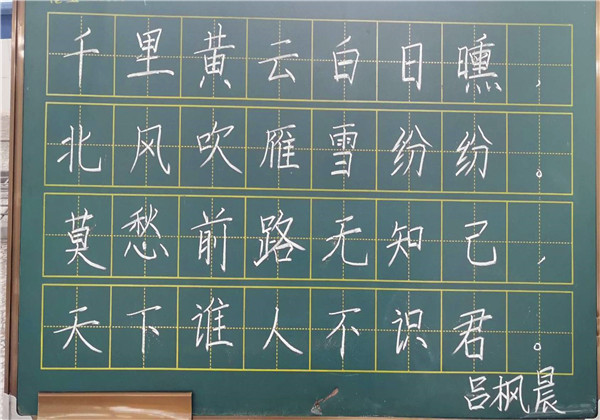 千里黄云白日曛，
北风吹雁雪纷纷。
莫愁前路无知己，
天下谁人不识君。
吕枫晨